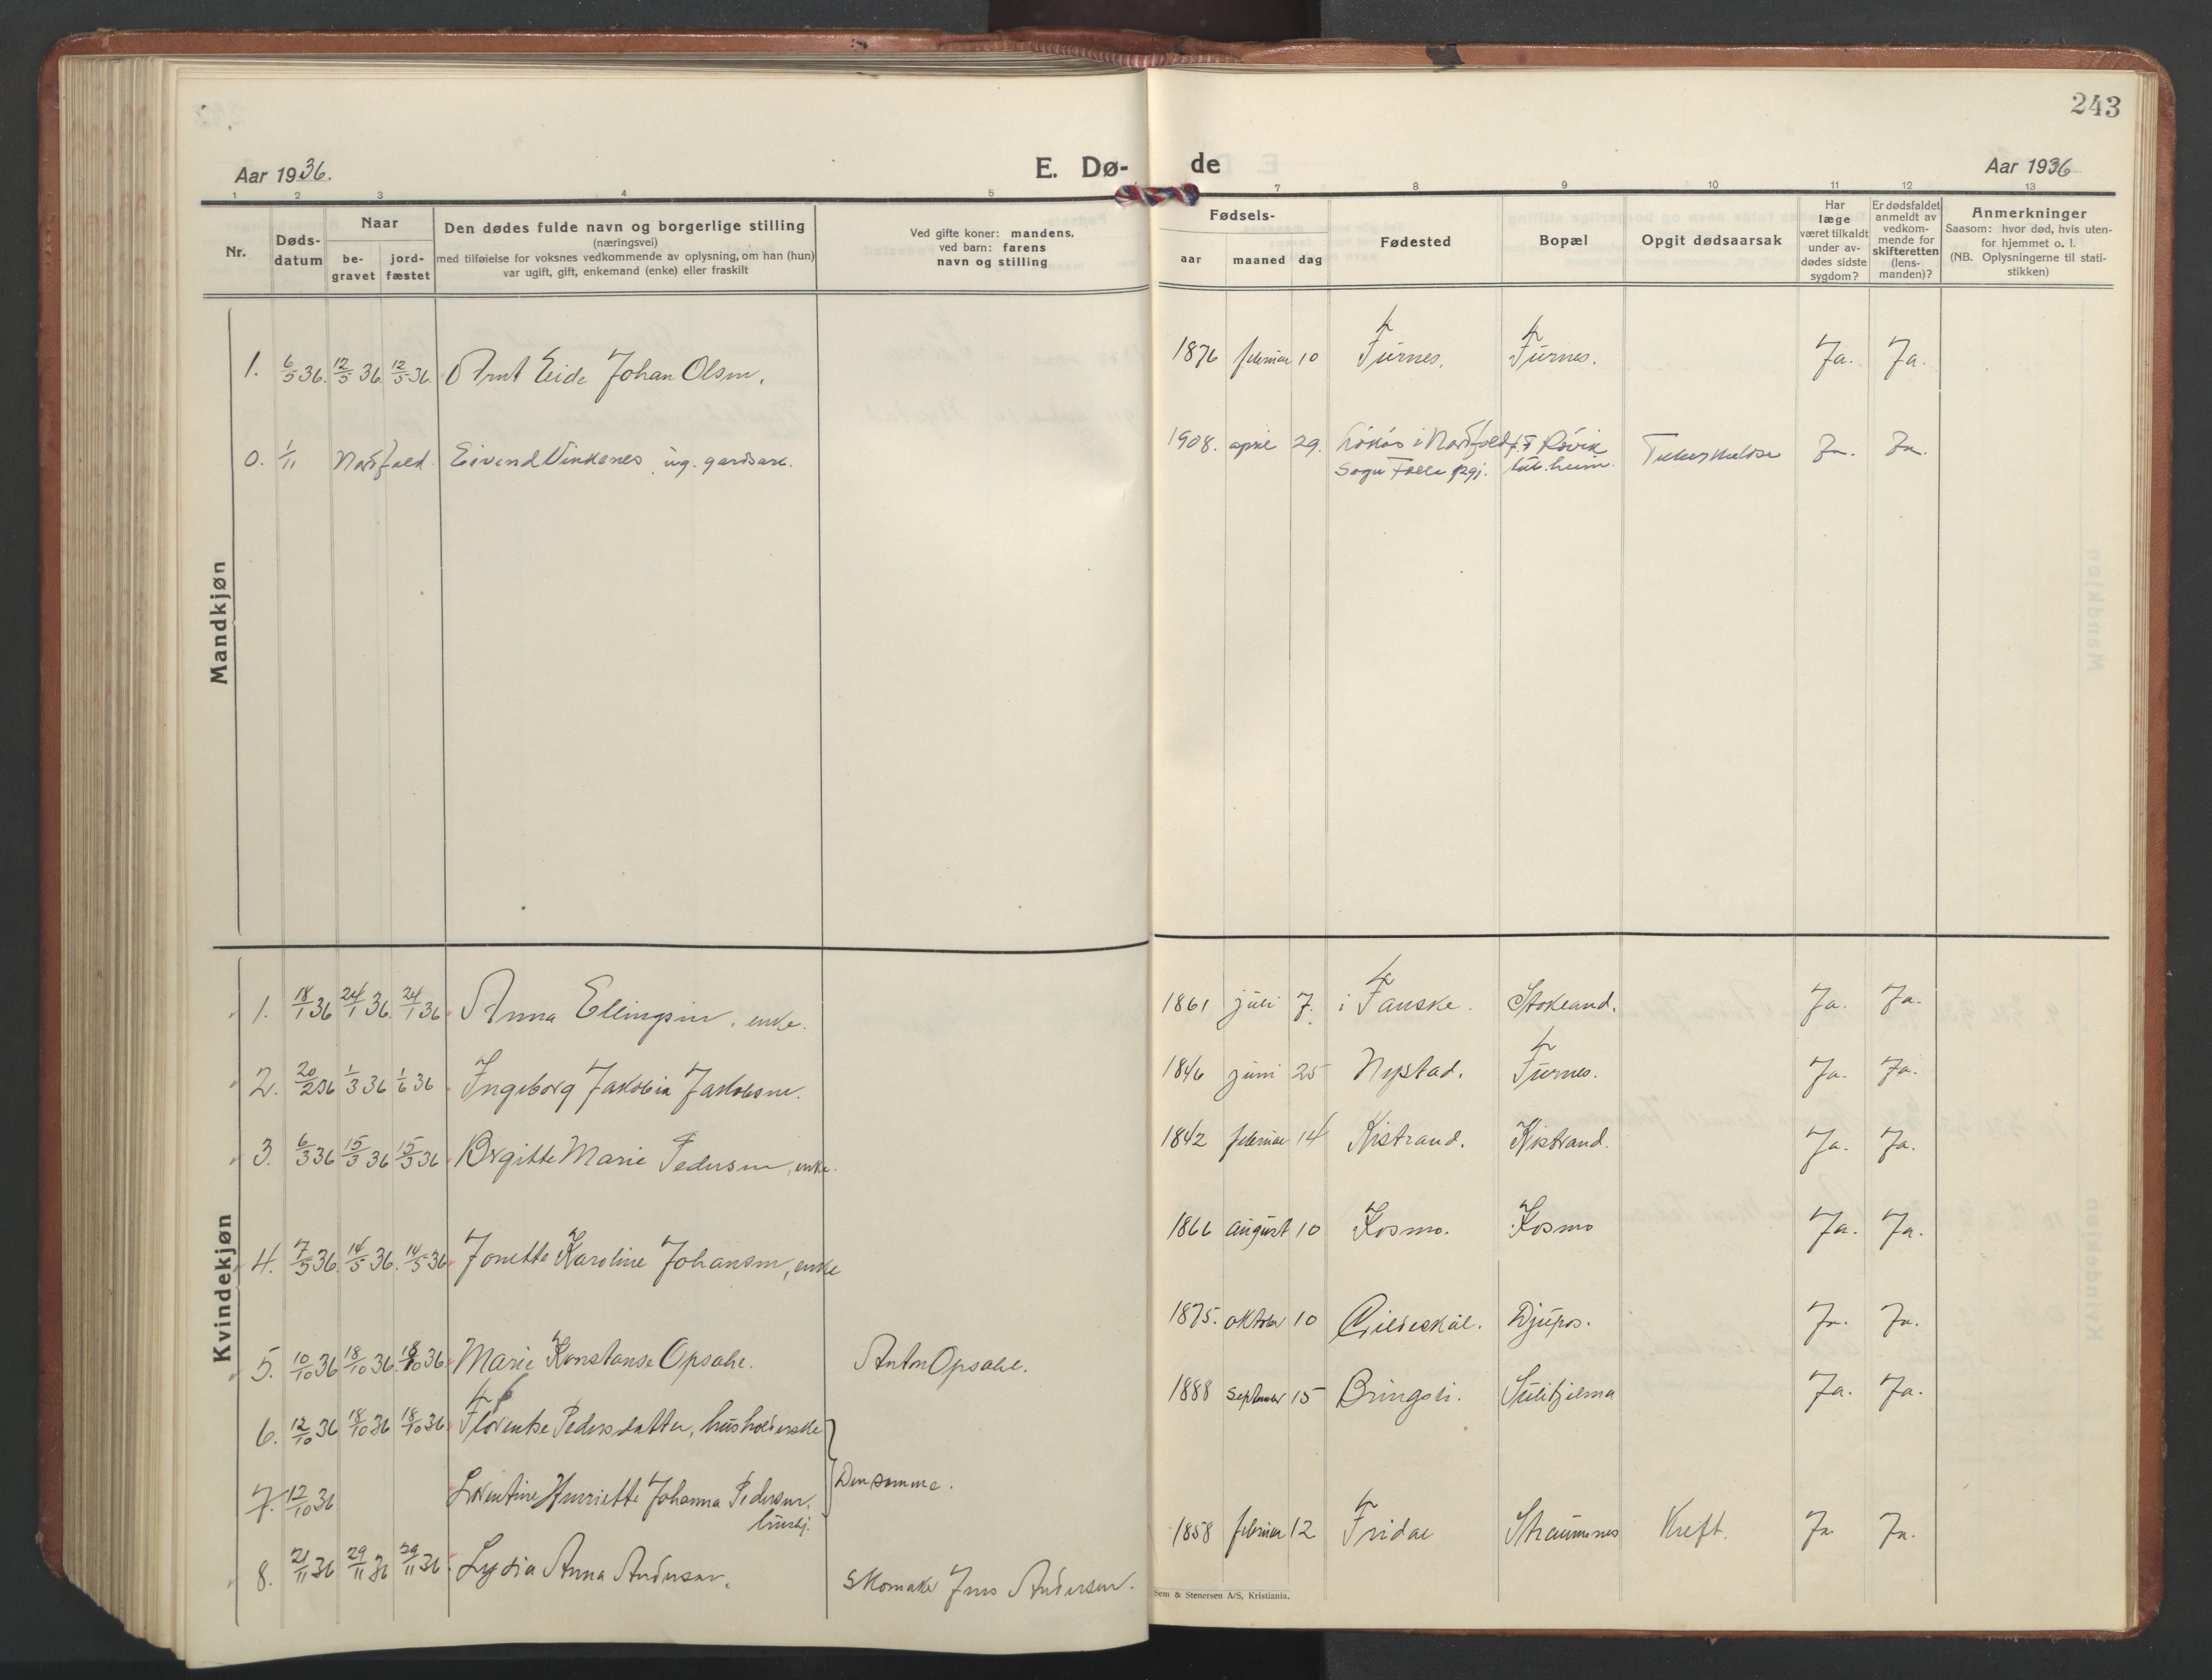 243
Aar 1936.
E. Dø-
de
Aar 1936
1 2 3 4 5 7 8 9 10 11 12 13
Nr.
Døds-
datum
Naar
be-
gravet
jord-
fæstet
Den dødes fulde navn og borgerlige stilling
(næringsvei)
med tilføielse for voksnes vedkommende av oplysning, om han (hun)
var ugift, gift, enkemand (enke) eller fraskilt
Ved gifte koner: mandens,
ved barn: farens
navn og stilling
Fødsels-
aar maaned dag
Fødested
Bopæl
Opgit dødsaarsak
Har
læge
været tilkaldt
under av-
dødes sidste
sygdom?
Er dødsfaldet
anmeldt av
vedkom-
mende for
skifteretten
(lens-
manden)?
Anmerkninger
Saasom: hvor død, hvis uten-
for hjemmet o. l.
(NB. Oplysningerne til stati-
stikken)
Mandkjøn
1. 6/5 36. 12/5 36. 12/5 36. Arnt Eide Johan Olsen. 1876 februar 10 Furnes. Furnes. Ja. Ja.
0. 1/11 Nordfold Eivend Vinkenes ug. gardsarb. 1908. april 29. i Nordfold Røvik Tuberkulose Ja. Ja.
sogn Folla pgj. tub.heim.
Kvindekjøn
1. 18/1 36 24/1 36. 24/1 36 Anna Ellingsen, enke. 1861 juli 7. i Fauske. Stokland. Ja. Ja.
2. 20/2 36 1/3 36 1/6 36 Ingeborg Jakobia Jakobsen. 1846 juni 25 Nystad. Furnes. Ja. Ja.
3. 6/3 36 15/3 36 15/3 36 Birgitte Marie Pedersen, enke. 1842 februar 14 Kistrand. Kistrand. Ja. Ja.
4. 7/5 36. 14/5 36. 14/5 36 Jonette Karoline Johansen, enke 1866 august 10 Kosmo. Kosmo Ja. Ja.
5. 10/10 36 18/10 36. 18/10 36. Marie Konstanse Opsahl. Anton Opsahl. 1875. oktober 10 Gildeskål. Djupos. Ja. Ja.
6. 12/10 36 18/10 36 18/10 36 Florentse Pedersdatter, husholderske 1888 september 15 Bringsli. Sulitjelma Ja. Ja.
7. 12/10 36 Lorentine Henriette Johanna Pedersen, Den samme.
hushj.
8. 21/11 36 29/11 36 29/11 36. Lydia Anna Andersen. Skomaker Jens Andersen. 1858 februar 12 Fridal Straumnes Kreft. Ja Ja.
Sem & Stenersen A/S, Kristiania.